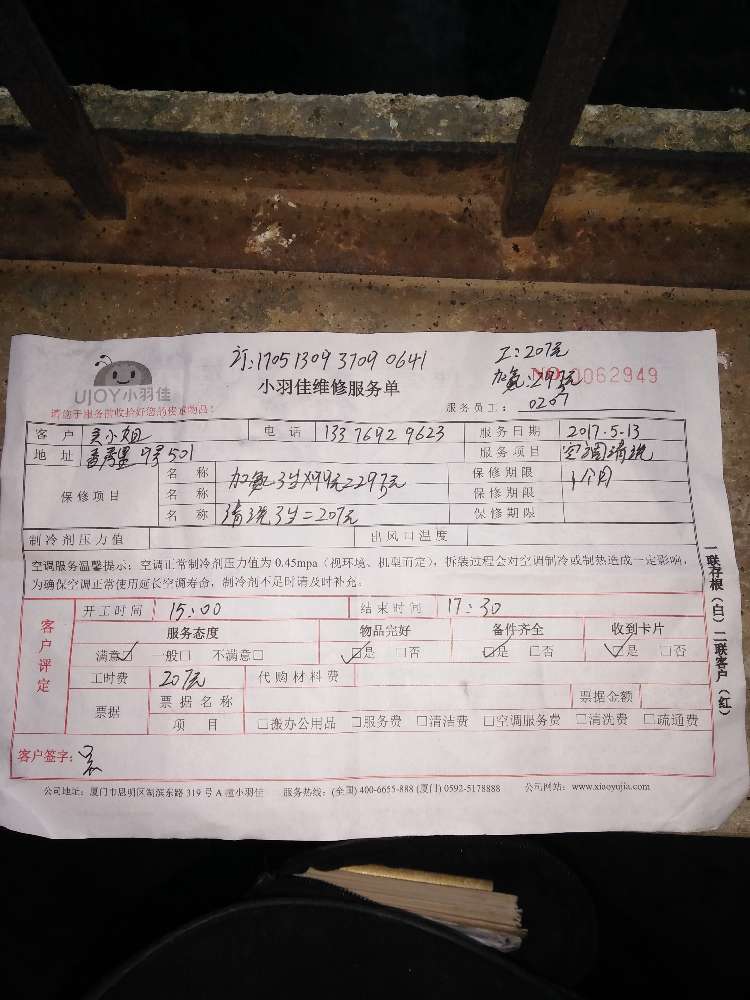 订:1705 1309 3709 0641
工:207元
加氟:297元
NO.0062949
UJOY小羽佳
小羽佳维修服务单
请您于服务前收拾好您的贵重物品!
服务员工: 0207
客 户 吴小姐 电 话 133 7692 9623 服务日期 2017.5.13
地 址 9号501 服务项目 空调清洗
保修项目
名 称 加氟3台 297元 保修期限 1个月
名 称 保修期限
名 称 清洗3台=207元 保修期限
制冷剂压力值 出风口温度
空调服务温馨提示:空调正常制冷剂压力值为 0.45mpa(视环境、机型而定),拆装过程会对空调制冷或制热造成一定影响,
为确保空调正常使用延长空调寿命,制冷剂不足时请及时补充。
一联存根(白)二联客户(红)
客户评定
开工时间 15:00 结束时间 17:30
服务态度 物品完好 备件齐全 收到卡片
满意☑ 一般□ 不满意□ ☑是 □否 ☑是 □否 ☑是 □否
工时费 207元 代购材料费
票据 票据名称 票据金额
项 目 □搬办公用品 □服务费 □清洁费 □空调服务费 □清洗费 □疏通费
客户签字: 吴
公司地址:厦门市思明区湖滨东路 319 号 A 幢小羽佳 服务热线:(全国) 400-6655-888 (厦门) 0592-5178888 公司网站:www.xiaoyujia.com